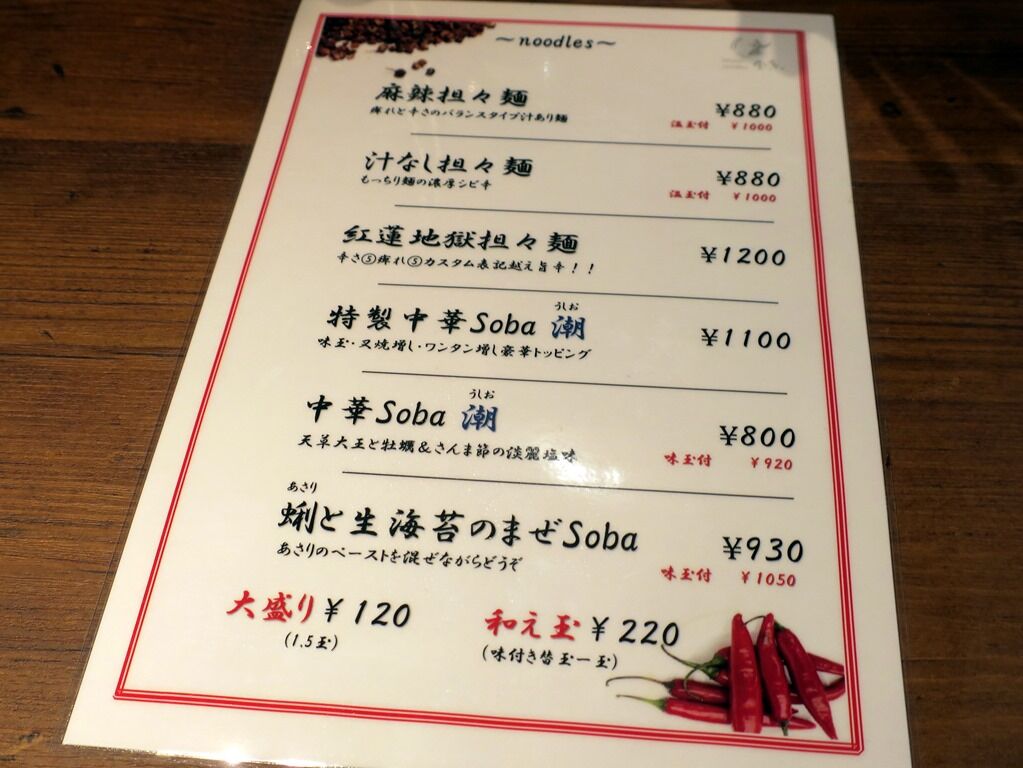 〜noodles〜
麻辣担々麺 ¥880
痺れと辛さのバランスタイプ汁あり麺 温玉付 ¥1000
汁なし担々麺 ¥880
もっちり麺の濃厚シビ辛 温玉付 ¥1000
紅蓮地獄担々麺 ¥1200
辛さ⑤痺れ⑤カスタム表記越え旨辛！！
うしお
特製中華Soba 潮 ¥1100
味玉・叉焼増し・ワンタン増し豪華トッピング
うしお
中華Soba 潮 ¥800
天草大王と牡蠣＆さんま節の淡麗塩味 味玉付 ¥920
あさり
蜊と生海苔のまぜSoba ¥930
あさりのペーストを混ぜながらどうぞ 味玉付 ¥1050
大盛り¥120 和え玉¥220
(1.5玉) (味付き替玉一玉)